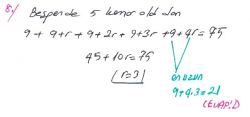 8-) Beşgende 5 kenar olduğundan
9 + 9+r + 9+2r + 9+3r + 9+4r = 75
45 + 10r = 75
r=3
en uzun
9+4.3=21
CEVAP: D